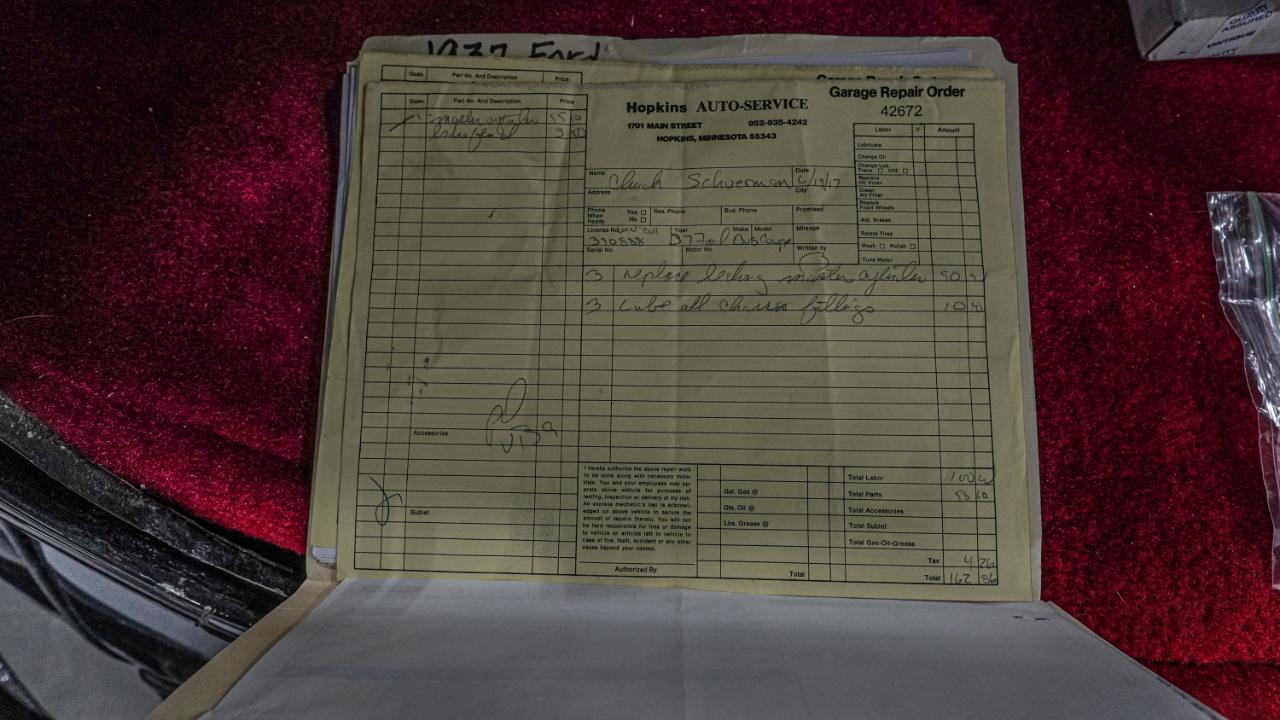 1937 Ford
Quan. Part No. And Description Price
Garage Repair Order
Quan. Part No. And Description Price
master cylinder
3
Hopkins AUTO-SERVICE
1701 MAIN STREET 952-935-4242
HOPKINS, MINNESOTA 55343
Garage Repair Order
42672
Labor √ Amount
Lubricate
Change Oil
Change Lub.
Trans. Diff.
Replace
Oil Filter
Clean
Air Filter
Repack
Front Wheels
Adj. Brakes
Rotate Tires
Wash Polish
Tune Motor
Name Chuck Schuerman Date 6/19/17
Address City
Phone When Ready Yes No Res. Phone Bus. Phone Promised
License No. Year Make Model Mileage
37 Ford
Serial No. Motor No. Written by
3 replace leaking master cylinder 90
3 Lube all chassis fittings 10
Accessories
pd
visa
Sublet
I hereby authorize the above repair work
to be done along with necessary mate-
rials. You and your employees may op-
erate above vehicle for purposes of
testing, inspection or delivery at my risk.
An express mechanic's lien is acknowl-
edged on above vehicle to secure the
amount of repairs thereto. You will not
be held responsible for loss or damage
to vehicle or articles left in vehicle in
case of fire, theft, accident or any other
cause beyond your control.
Authorized By
Gal. Gas @
Qts. Oil @
Lbs. Grease @
Total
Total Labor 100
Total Parts 58 60
Total Accessories
Total Sublet
Total Gas-Oil-Grease
Tax 4 26
Total 162 86
QUALITY
ASSURED
VINTIQUE